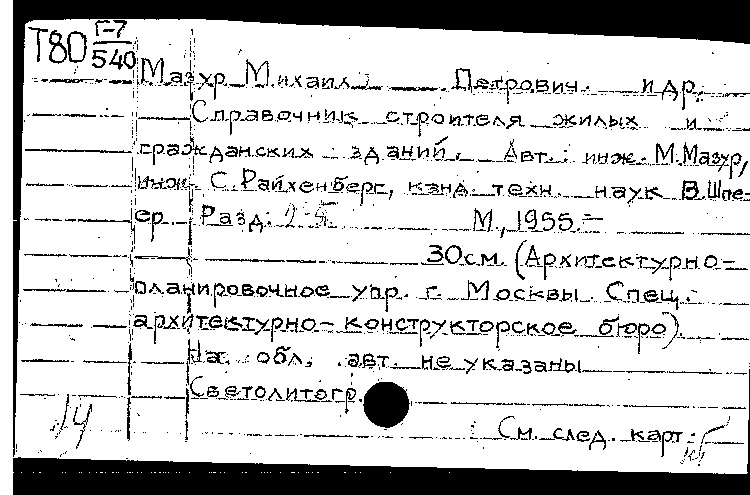 Т80 Г-7/540
Мазур Михаил Петрович и др.
Справочник строителя жилых и
гражданских зданий. Авт.: инж. М.Мазур,
инж. С.Райхенберг, канд. техн. наук В.Шпе-
ер. Разд. М., 1955.-
30см. (Архитектурно-
планировочное упр. г. Москвы. Спец.
архитектурно-конструкторское бюро).
На обл. авт. не указаны
Светолитогр.
См. след. карт.